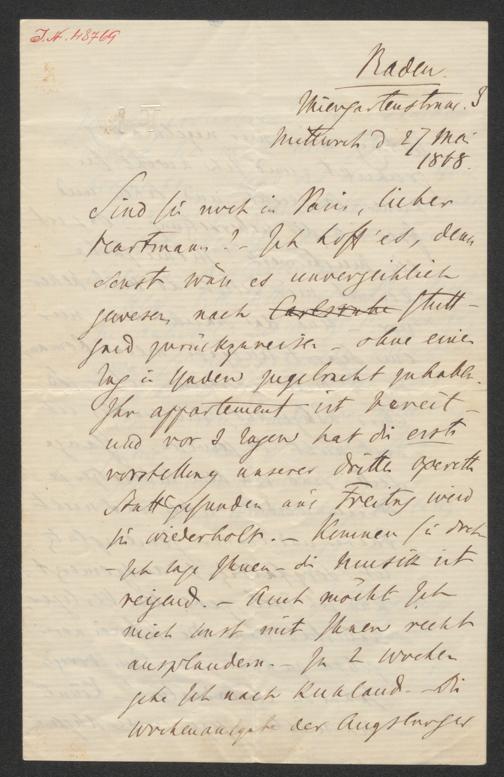 J.N. 48769
Baden.
Thiergartenstrasse. 3
Mittwoch d 27 Mai
1868.
Sind Sie noch in Paris, lieber
Hartmann? – Ich hoff' es, denn
sonst wär es unverzeihlich
gewesen nach Carlsruhe Stutt-
gard zurückzureisen – ohne einen
Tag in Baden zugebracht zu haben.
Ihr appartement ist bereit –
und vor 3 Tagen hat die erste
vorstellung unserer dritten operette
Stattgefunden am Freitag wird
sie wiederholt. – Kommen Sie doch
– Ich sage Ihnen – die Musik ist
reizend. – Auch möcht Ich
mich mit Ihnen recht
ausplaudern. – In 2 Wochen
gehe Ich nach Rußland. – Die
Wochenausgabe der Augsburger